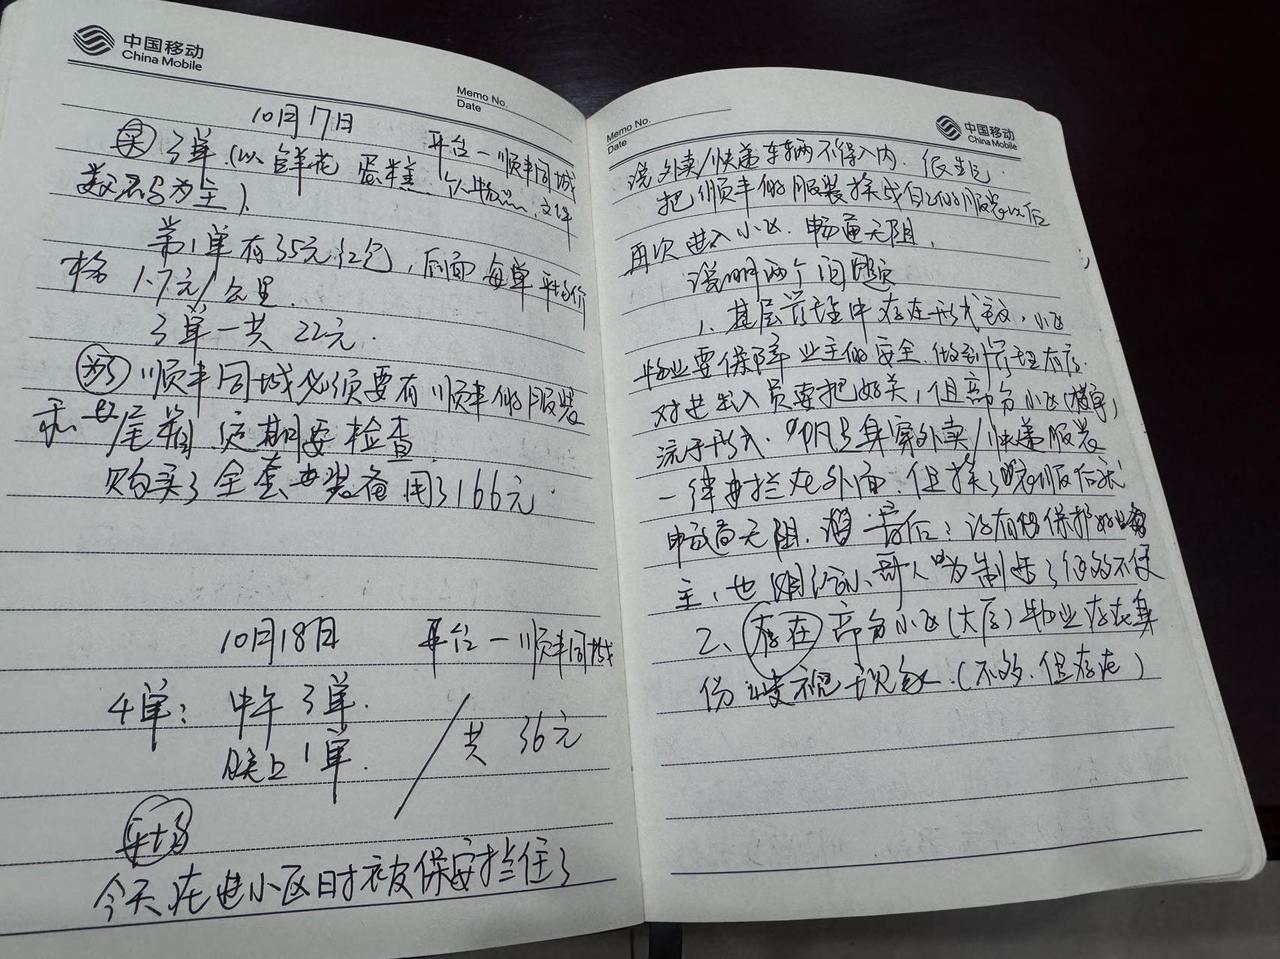 中国移动
China Mobile
Memo No.
Date
10月17日
平台—顺丰同城
3单(以鲜花 蛋糕 个人物品、文件
为主)
第1单有35元红包,后面每单平均价
格 1.7元/公里.
3单一共 22元.
顺丰同城必须要有顺丰的服装
和 尾箱 定期要检查.
购买了全套 装备用了166元.
10月18日
平台—顺丰同城
4单: 中午3单.
晚上1单.
/共 36元
今天在进小区时被保安拦住了
Memo No.
Date
中国移动
China Mobile
说外卖/快递车辆不得入内.
把顺丰的服装换成自己的服装以后
再次进入小区.畅通无阻.
说明两个问题
1、基层管理中存在形式主义,小区
物业要保障业主的安全.做到管理有序.
对进出人员要把好关,但部分小区(楼宇)
流于形式.凡是身穿外卖/快递服装
一律要拦在外面.但换了 服后就
畅通无阻. 没有保护好业
主,也 给小哥人为制造了很多不便
2、存在部分小区(大厦)物业存在身
份歧视现象.(不多.但存在)